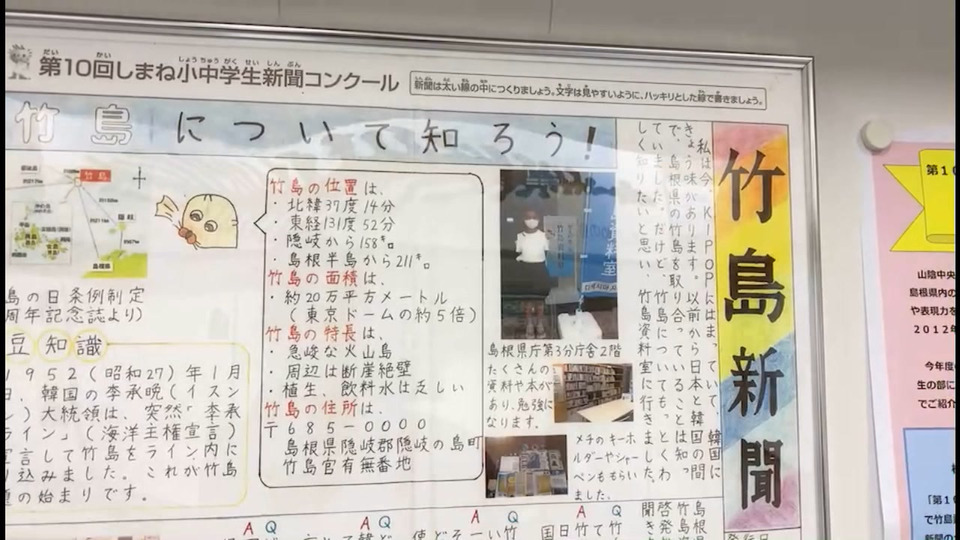 第10回しまね小中学生新聞コンクール
新聞は太い線の中につくりましょう。文字は見やすいように、ハッキリとした線で書きましょう。
竹島について知ろう!
竹島新聞
私は今、K-POPにはまっていて、韓国に
きょう味があります。以前から日本と韓国の間
で、島根県の竹島を取り合っていることは知っ
ていました。だけど、竹島についてもっとくわ
しく知りたいと思い、竹島資料室に行きました。
竹島
隠岐
島根県
竹島の位置は、
・北緯37度14分
・東経131度52分
・隠岐から158㌔。
・島根半島から211㌔。
竹島の面積は、
・約20万平方メートル
(東京ドームの約5倍)
竹島の特長は、
・急峻な火山島
・周辺は断崖絶壁
・植生、飲料水は乏しい
竹島の住所は、
〒685-0000
島根県隠岐郡隠岐の島町
竹島官有無番地
島の日条例制定
周年記念誌より)
豆知識
1952(昭和27)年1月
日、韓国の李承晩(イスン
ン)大統領は、突然「李承
ライン」(海洋主権宣言)
宣言して竹島をライン内に
り込みました。これが竹島
題の始まりです。
資料室
島根県庁第3分庁舎2階
たくさんの
資料や本が
あり、勉強に
なります。
メモのキーホ
ルダーやシャー
ペンももらい
ました。
A Q A Q A Q A Q
発行日
第1
山陰中央
島根県内の
や表現力を
2012年
今年度
生の部に
でご紹介
「第1
で竹島
新聞の